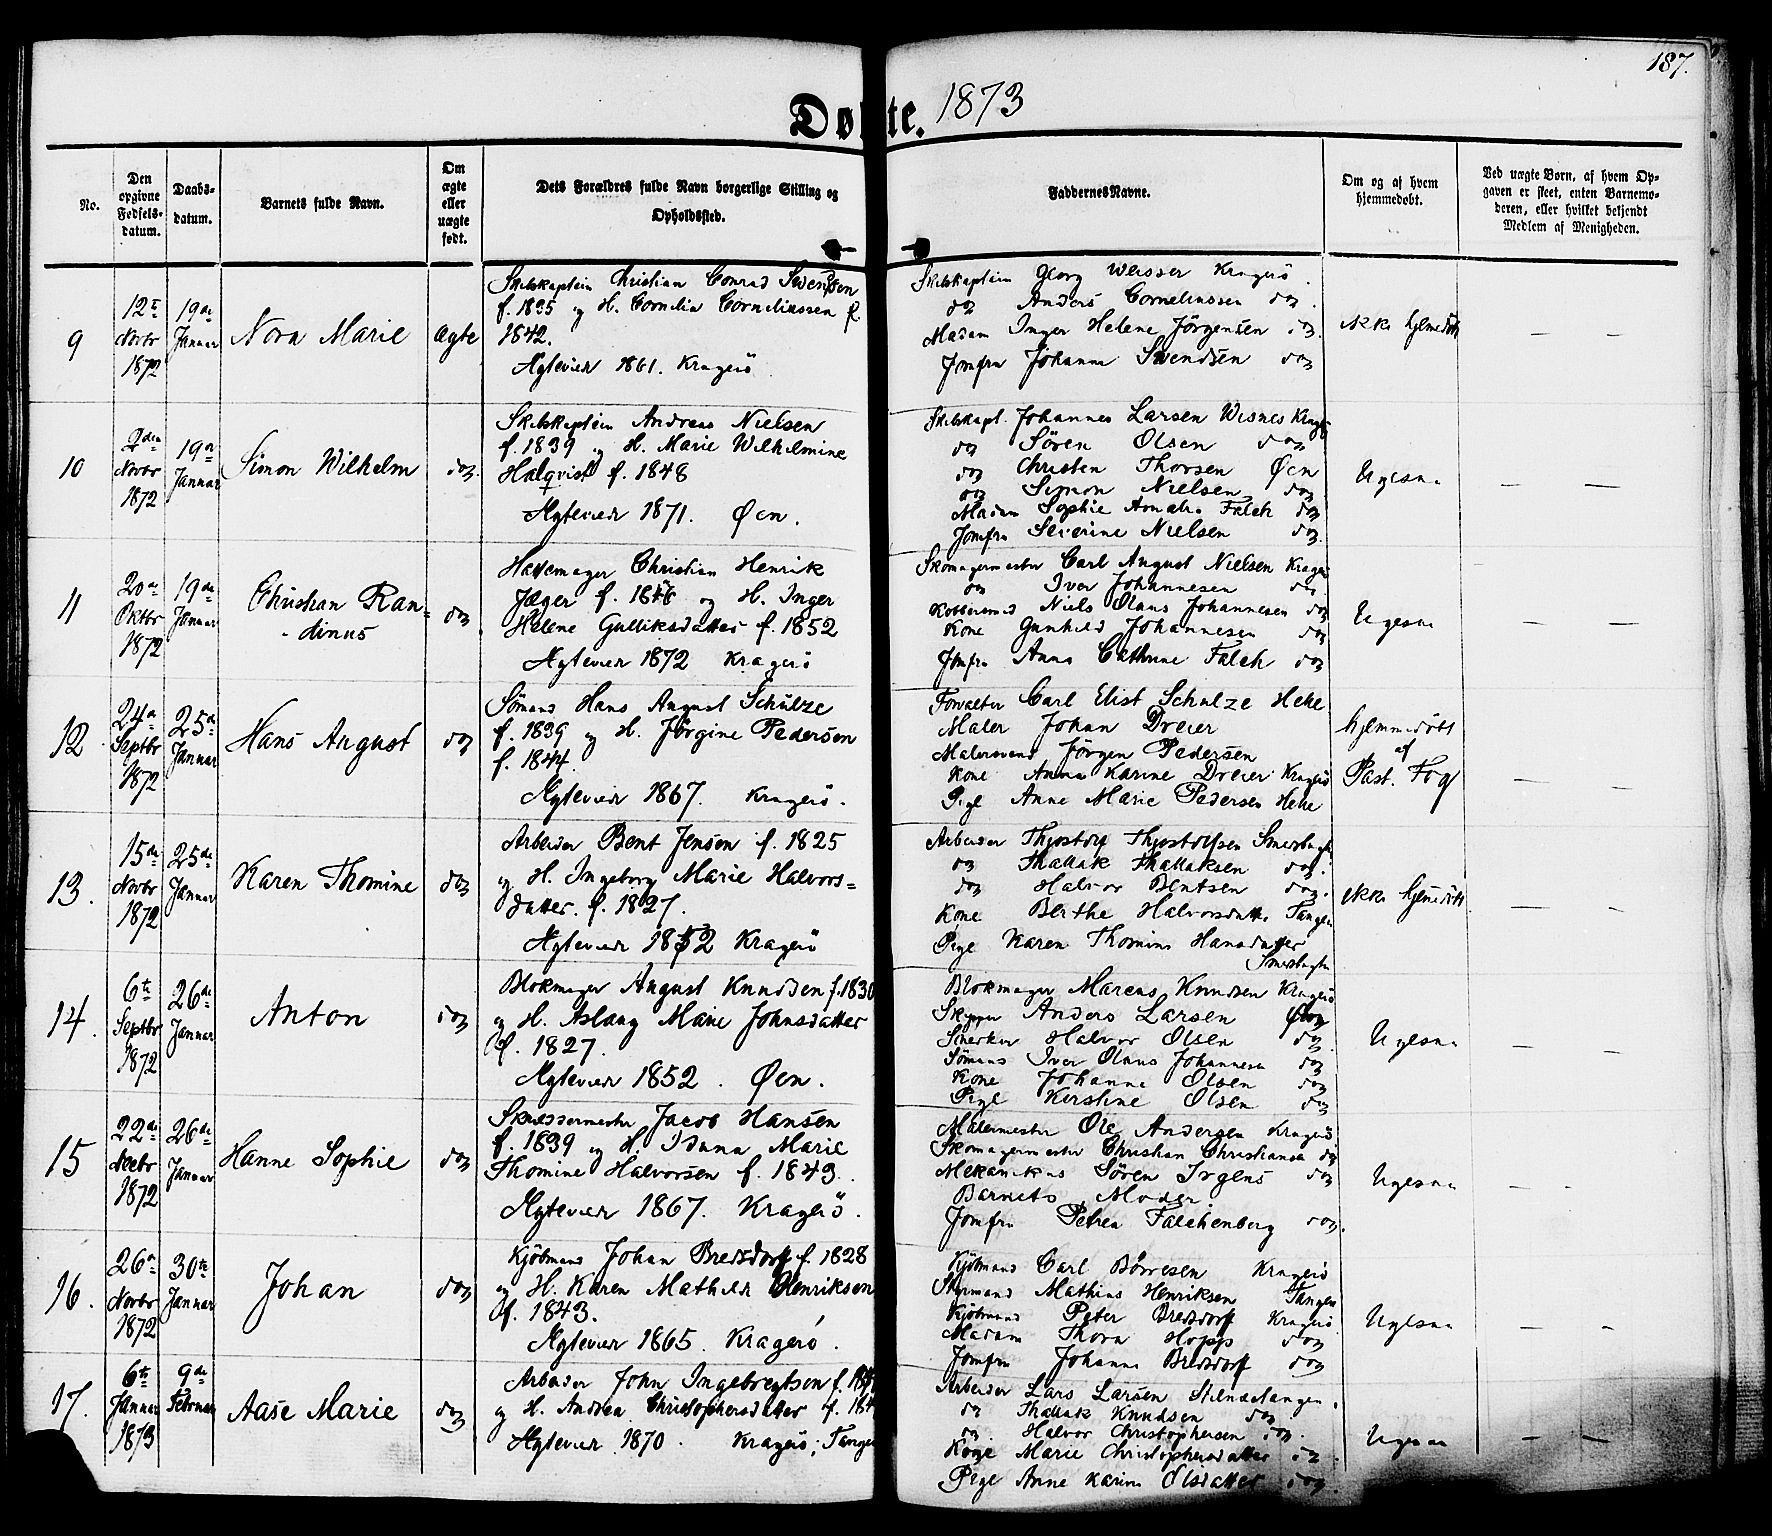 187.
Døbte. 1873
No.
Den
opgivne
Fødsels-
datum.
Daabs-
datum.
Barnets fulde Navn.
Om
ægte
eller
uægte
født.
Dets Forældres fulde Navn borgerlige Stilling og
Opholdssted.
Faddernes Navne.
Om og af hvem
hjemmedøbt.
Ved uægte Børn, af hvem Op-
gaven er skeet, enten Barnemo-
deren, eller hvilket betjendt
Medlem af Menigheden.
9
12te
Novbr
1872
19de
Januar
Nora Marie
Ægte
Skibskaptein Christian Conrad Svendsen
f. 1835 og H. Cornelia Corneliussen f.
1842.
Ægteviede 1861. Kragerö
Skibskaptein Georg Weisser Kragerö
do Anders Corneliussen do
Madam Inger Helene Jörgensen do
Jomfru Johanna Svendsen do
ikke hjemedöbt
10
2den
Novbr
1872
19de
Januar
Simon Wilhelm
do
Skibskaptein Andreas Nielsen
f. 1839 og H. Marie Wilhelmine
Halqvist f. 1848
Ægteviede 1871. Øen.
Skibskapt. Johannes Larsen Kragerö
do Sören Olsen do
do Christen Thorsen Øen
do Simon Nielsen do
Madam Sophie Amalie Falch do
Jomfru Severine Nielsen do
Ligesaa
11
20de
Oktbr
1872
19de
Januar
Christian Ran-
dinus
do
Hattemager Christian Henrik
Jæger f. 1846 og H. Inger
Helene Gulliksdatter f. 1852
Ægteviede 1872 Kragerö
Skomagermester Carl August Nielsen Kragerö
do Iver Johannesen do
Kobbersmed Niels Olaus Johannesen do
Kone Gunhild Johannesen do
Jomfru Anna Cathrine Falch do
Ligesaa
12
24de
Septbr
1872
25de
Januar
Hans August
do
Sömand Hans August Schulze
f. 1839 og H. Jörgine Pedersen
f. 1844.
Ægteviede 1867. Kragerö.
Forvalter Carl Elist Schulze Helle
Maler Johan Dreier
Malersvend Jörgen Pedersen
Kone Anna Karine Dreier Kragerö
Pige Anne Marie Pedersen Helle
hjemmedöbt
af
Past. Fog
13.
15de
Novbr
1872
25de
Januar
Karen Thomine
do
Arbeider Bent Jensen f. 1825
og H. Ingeborg Marie Halvors-
datter. f. 1827.
Ægteviede 1852 Kragerö
Arbeider Thjostolf Thjostolfsen Smedsbugten
do Thallak Thallaksen do.
do Halvor Bentsen do.
Kone Berthe Halvorsdatter Tangen
Pige Karen Thomine Hansdatter
Smedsbugten
ikke hjemedöbt
14.
6te
Septbr
1872
26de
Januar
Anton
do
Blokmager August Knudsen f. 1830
og H. Aslaug Marie Johnsdatter
f. 1827.
Ægteviede 1852. Øen.
Blokmager Marcus Knudsen Kragerö
Skipper Anders Larsen
Halvor Olsen do
Sömand Iver Olaus Johannesen do
Kone Johanne Olsen do
Pige Kirstine Olsen do
Ligesaa
15
22de
1872
26de
Januar
Hanne Sophie
do
Skræddermester Jacob Hansen
f. 1839 og H. Idanna Marie
Thomine Halvorsen f. 1843.
Ægteviede 1867. Kragerö.
Malermester Ole Andersen Kragerö
Skomagermester Christian Christiansen do
Mekanikus Sören Irgens do
Barnets Moder
Jomfru Petrea Falchenberg do.
Ligesaa
16.
26de
Novbr
1872
30te
Januar
Johan
do
Kjöbmand Johan Bredsdorff f. 1828
og H. Karen Mathilde Henriksen
f. 1843.
Ægteviede 1865. Kragerö.
Kjöbmand Carl Börresen Kragerö
Styrmand Mathias Henriksen Tangen
Kjöbmand Peter Bredsdorff Kragerö
Madam Thora Hopp do
Jomfru Johanne Bredsdorff do
Ligesaa
17.
6te
Januar
1873
9de
Februar
Aase Marie
do
Arbeider John Ingebregtsen f.
og H. Andrea Christophersdatter f.
Ægteviede 1870. Kragerö, Tangen
Arbeider Lars Larsen
do Thallak Knudsen do
do. Halvor Christophersen do.
Kone Marie Christophersdatter do
Pige Anne Karine Olsdatter do.
Ligesaa